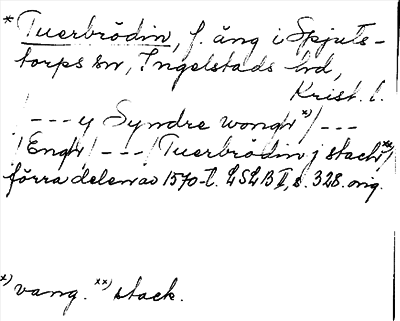 * Tuerbrödin, f. äng i Spjuts-
torps sn, Ingelstads hd,
Krist. l.
/ --- y Syndre wongr *)/ ---
/ Engr / --- / Tuerbrödin j stackr **)/
förra delen av 1570-t. LSLB II, s. 328. orig.
*) vang. **) stack.